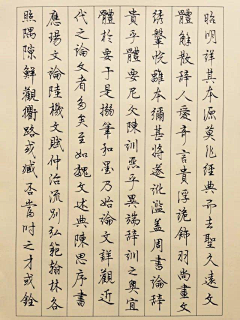 昭明詳其本源莫非經典而去聖久遠文
體解散辭人愛奇言貴浮詭飾羽尚畫文
繡鞶帨離本彌甚將遂訛濫蓋周書論辭
貴乎體要尼父陳訓惡乎異端辭訓之奧宜
體於要于是搦筆和墨乃始論文詳觀近
代之論文者多矣至如魏文述典陳思序書
應瑒文論陸機文賦仲治流別弘範翰林各
照隅隙鮮觀衢路或臧否當時之才或銓